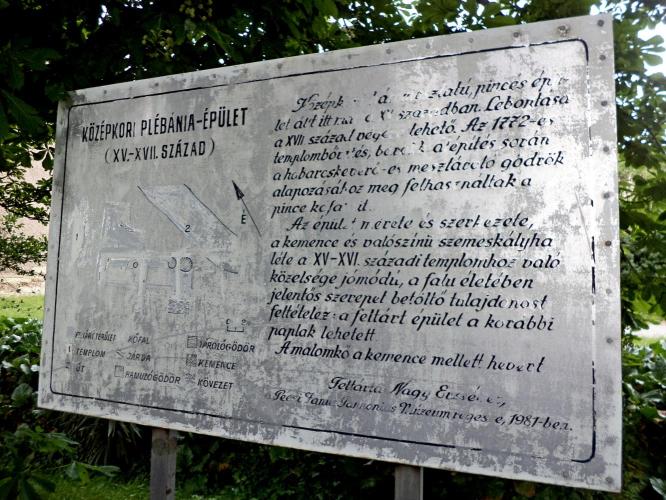 KÖZÉPKORI PLÉBÁNIA-ÉPÜLET
(XV.-XVII. SZÁZAD)
1
2
É
TERÜLET KŐFAL
1 TEMPLOM JÁRDA
2 ÚT HAMUZÓGÖDÖR
TÁROLÓGÖDÖR
KEMENCE
KÖVEZET
pincés
században. Lebontása
a XVII század lehető. Az 1772-es
építés során
a habarcskeverő-és mésztároló gödrök
alapozásához meg felhasználták a
pince
Az épület és szerkezete,
a kemence és valószínű szemeskályha
léte a XV-XVI. századi templomhoz való
közelsége jómódú, a falu életében
jelentős szerepet betöltő tulajdonost
feltételez: a feltárt épület a korábbi
paplak lehetett
A malomkő a kemence mellett hevert
Feltárta Nagy
Pécsi Janus Pannonius Múzeum 1981-ben.